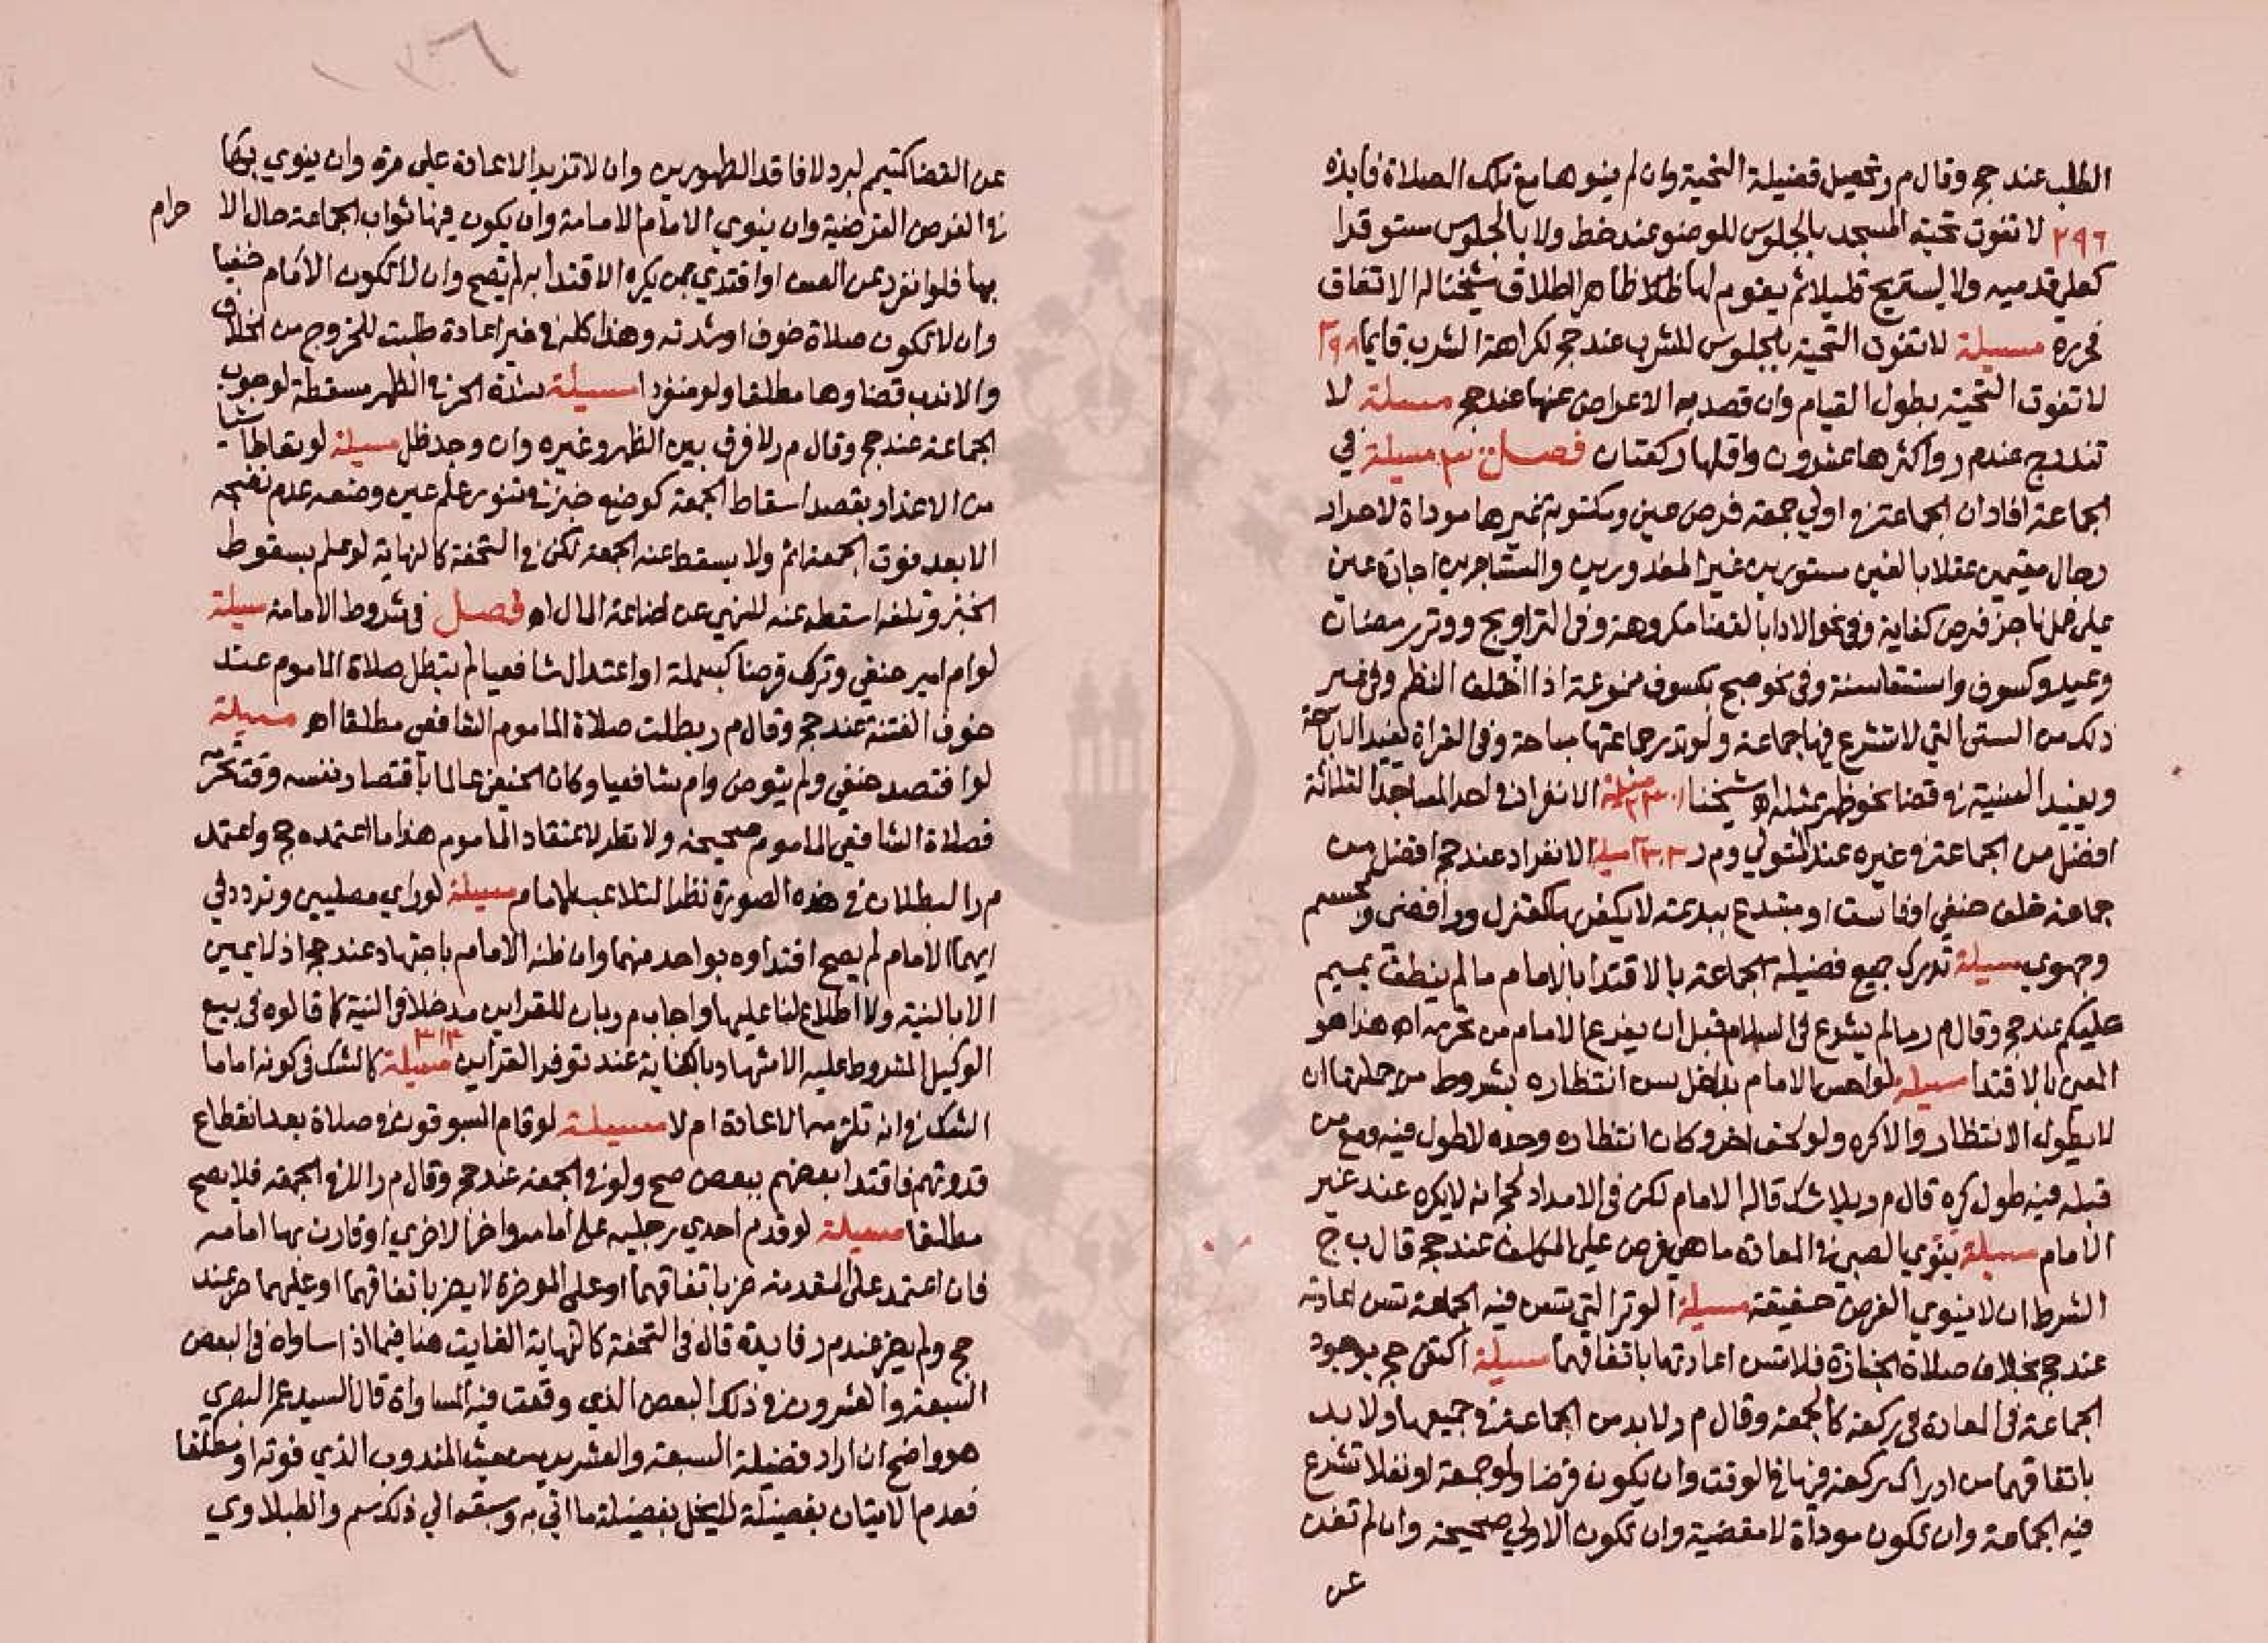 الطلب عند حج وقال م ر تحصيل فضيلة التحية وان لم ينوها مع تلك الصلاة فايدة
٢٩٦ لا تفوت تحية المسجد بالجلوس للوضوء عند خط ولا بالجلوس مستوفزا
كعلي قدميه ولا ليستريح قليلا ثم يقوم لها ظاهر اطلاق شيخنا له الاتفاق
فحرره مسيلة لا تفوت التحية بالجلوس للشرب عند حج لكراهة الشرب قايما ٢٩٨
لا تفوت التحية بطول القيام وان قصد به الاعراض عنها عند حج مسيلة لا
تندرج عند م ر واكثرها عشرون واقلها ركعتان فصل مسيلة في
الجماعة افاد ان الجماعة في اولي جمعة فرض عين ومكتوبة غيرها موداة لاحرار
رجال مقيمين عقلا بالغين مستورين غير المعذورين والمستاجرين اجارة عين
علي عمل ناجز فرض كفاية وفي نحو الادا بالقضا مكروهة وفي التراويح ووتر رمضان
وعيد وكسوف واستسقا سنة وفي نحو صبح بكسوف ممنوعة اذا اختلف النظم وفي غير
ذلك من السنن التي لا تشرع فيها جماعة ولو نذر جماعتها مباحة وفي القراة لفيد الاباحة
ويفيد السنية في قضا نحو ظهر بمثله اه شيخنا مسيلة الانفراد في احد المساجد الثلاثة
افضل من الجماعة في غيره عند المتولي و م ر مسيلة الانفراد عند حج افضل من
جماعة خلف حنفي او فاسق او مبتدع ببدعته لا يكفر بها كمعتزل ورافضي ومجسم
وجهوي مسيلة تدرك جميع فضيلة الجماعة بالاقتدا بالامام ما لم ينطق بميم
عليكم عند حج وقال م ر ما لم يشرع في السلام قبل ان يفرغ الامام من تحرمه اه هذا هو
المعين بالاقتدا مسيلة لو احس الامام بداخل سن انتظاره بشروط من جملتها ان
لا يطول الانتظار والا كره ولو لحق اخر وكان انتظاره وحده لا طول فيه ومع من
قبله فيه طول كره قال م ر بلا شك قاله الامام لكن في الامداد لحج انه لا يكره عند غير
الامام مسيلة ينوي الصبي في المعادة ما هي فرض علي المكلف عند حج قال ب ج
الشرط ان لا ينوي الفرض حقيقة مسيلة الوتر التي تسن فيه الجماعة تسن اعادته
عند حج بخلاف صلاة الجنازة فلا تسن اعادتها باتفاقهما مسيلة اكتفى حج بوجود
الجماعة في المعادة في ركعة كالجمعة وقال م ر لا بد من الجماعة في جميعها ولا بد
باتفاقهما من ادراك ركعة فيها في الوقت وان يكون فرضا ولو جمعة او نفلا تشرع
فيه الجماعة وان تكون موداة لا مقضية وان تكون الاولي صحيحة وان لم تغن
عن
عن القضا كتيمم لبرد لا فاقد الطهورين وان لا تزيد الاعادة علي مرة وان ينوي بها
في الفرض الفرضية وان ينوي الامام الامامة وان يكون فيها ثواب الجماعة حال الا
حرام
بها فلو انفرد عن الصف او اقتدي بمن يكره الاقتدا به لم تصح وان لا تكون الامام حنفيا
وان لا تكون صلاة خوف او شدته وهذا كله في غير اعادة طلبت للخروج من الخلاف
والا ندب قضاوها مطلقا ولو منفردا مسيلة شدة الحر في الظهر مسقطة لوجوب
الجماعة عند حج وقال م ر لا فرق بين الظهر وغيره وان وجد ظل مسيلة لو تعاطا شيا
من الاعذار بقصد اسقاط الجمعة كوضع خبز في تنور علم حين وضعه عدم نضجه
الا بعد فوت الجمعة اثم ولا يسقط عنه الجمعة لكن في التحفة كالنهاية لو علم بسقوط
الخبز وتلفه اسقطه عنه للنهي عن اضاعة المال اه فصل في شروط الامامة مسيلة
لو ام امير حنفي وترك فرضا كبسملة او اعتدال شافعيا لم تبطل صلاة الماموم عند
خوف الفتنة عند حج وقال م ر بطلت صلاة الماموم الشافعي مطلقا اه مسيلة
لو افتصد حنفي ولم يتوض وام شافعيا وكان الحنفي عالما بافتصاد نفسه وقت تحرمه
فصلاة الشافعي الماموم صحيحة ولا نظر لاعتقاد الماموم هذا ما اعتمده حج واعتمد
م ر البطلان في هذه الصورة نظرا لتلاعب الامام مسيلة لو راي مصليين وتردد في
ايهما الامام لم يصح اقتداوه بواحد منهما وان ظنه الامام باجتهاد عند حج اذ لا يميز
الا بالنية ولا اطلاع لنا عليها واجاب م ر بان للقراين مدخلا في النية كما قالوه في بيع
الوكيل المشروط عليه الاشهاد بالكناية عند توفر القراين مسيلة ٣١٣ كالشك في كونه اماما
الشك في انه تلزمه الاعادة ام لا مسيلة لو قام المسبوقون في صلاة بعد انقطاع
قدوتهم فاقتدا بعضهم ببعض صح ولو في الجمعة عند حج وقال م ر الا في الجمعة فلا يصح
مطلقا مسيلة لو قدم احدي رجليه علي امامه واخر الاخري او قارن بها امامه
فان اعتمد علي المتقدمة ضر باتفاقهما او علي الموخرة لا يضر باتفاقهما او عليهما ضر عند
حج ولم يضر عند م ر فايدة قال في التحفة كالنهاية الفايت هنا فيما اذا ساواه في البعض
السبعة والعشرون في ذلك البعض الذي وقعت فيه المساواة قال السيد عمر البصري
هو واضح ان اراد فضيلة السبعة والعشرين من حيث المندوب الذي فوته او مطلقا
فعدم الاتيان بفضيلة لا يخل بفضيلة ما اتي به وسبقه الي ذلك سم والطبلاوي